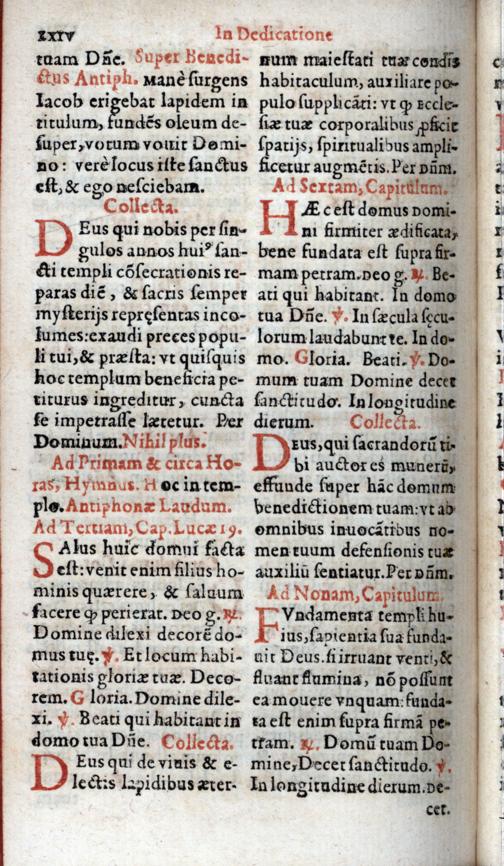 xxiv
In Dedicatione
tuam Dñe. Super Benedi-
ctus Antiph. Manè surgens
Iacob erigebat lapidem in
titulum, fundẽs oleum de-
super, votum vouit Domi-
no: verè locus iste sanctus
est, & ego nesciebam.
Collecta.
DEus qui nobis per sin-
gulos annos huiꝰ san-
cti templi cõsecrationis re-
paras diẽ, & sacris semper
mysterijs repręsentas inco-
lumes: exaudi preces popu-
li tui, & præsta: vt quisquis
hoc templum beneficia pe-
titurus ingreditur, cuncta
se impetrasse lætetur. Per
Dominum. Nihil plus.
Ad Primam & circa Ho-
ras, Hymnus. Hoc in tem-
plo. Antiphonæ Laudum.
Ad Tertiam, Cap. Lucæ 19.
SAlus huic domui facta
est: venit enim filius ho-
minis quærere, & saluum
facere ꝙ perierat. Deo g. ℟.
Domine dilexi decorẽ do-
mus tuę. ℣. Et locum habi-
tationis gloriæ tuæ. Deco-
rem. Gloria. Domine dile-
xi. ℣. Beati qui habitant in
domo tua Dñe. Collecta.
DEus qui de viuis & e-
lectis lapidibus æter-
num maiestati tuæ condis
habitaculum, auxiliare po-
pulo supplicãti: vt ꝙ Eccle-
siæ tuæ corporalibus ꝓficit
spatijs, spiritualibus ampli-
ficetur augmẽtis. Per Dñm.
Ad Sextam, Capitulum.
HÆc est domus Domi-
ni firmiter ædificata,
bene fundata est supra fir-
mam petram. Deo g. ℟. Be-
ati qui habitant. In domo
tua Dñe. ℣. In sæcula sęcu-
lorum laudabunt te. In do-
mo. Gloria. Beati. ℣. Do-
mum tuam Domine decet
sanctitudo. In longitudine
dierum. Collecta.
DEus, qui sacrandorũ ti-
bi auctor es munerũ,
effunde super hãc domum
benedictionem tuam: vt ab
omnibus inuocãtibus no-
men tuum defensionis tuæ
auxiliũ sentiatur. Per Dñm.
Ad Nonam, Capitulum.
FVndamenta templi hu-
ius, sapientia sua funda-
uit Deus. si irruant venti, &
fluant flumina, nõ possunt
ea mouere vnquam: funda-
ta est enim supra firmã pe-
tram. ℟. Domũ tuam Do-
mine, Decet sanctitudo. ℣.
In longitudine dierum. De-
cet.